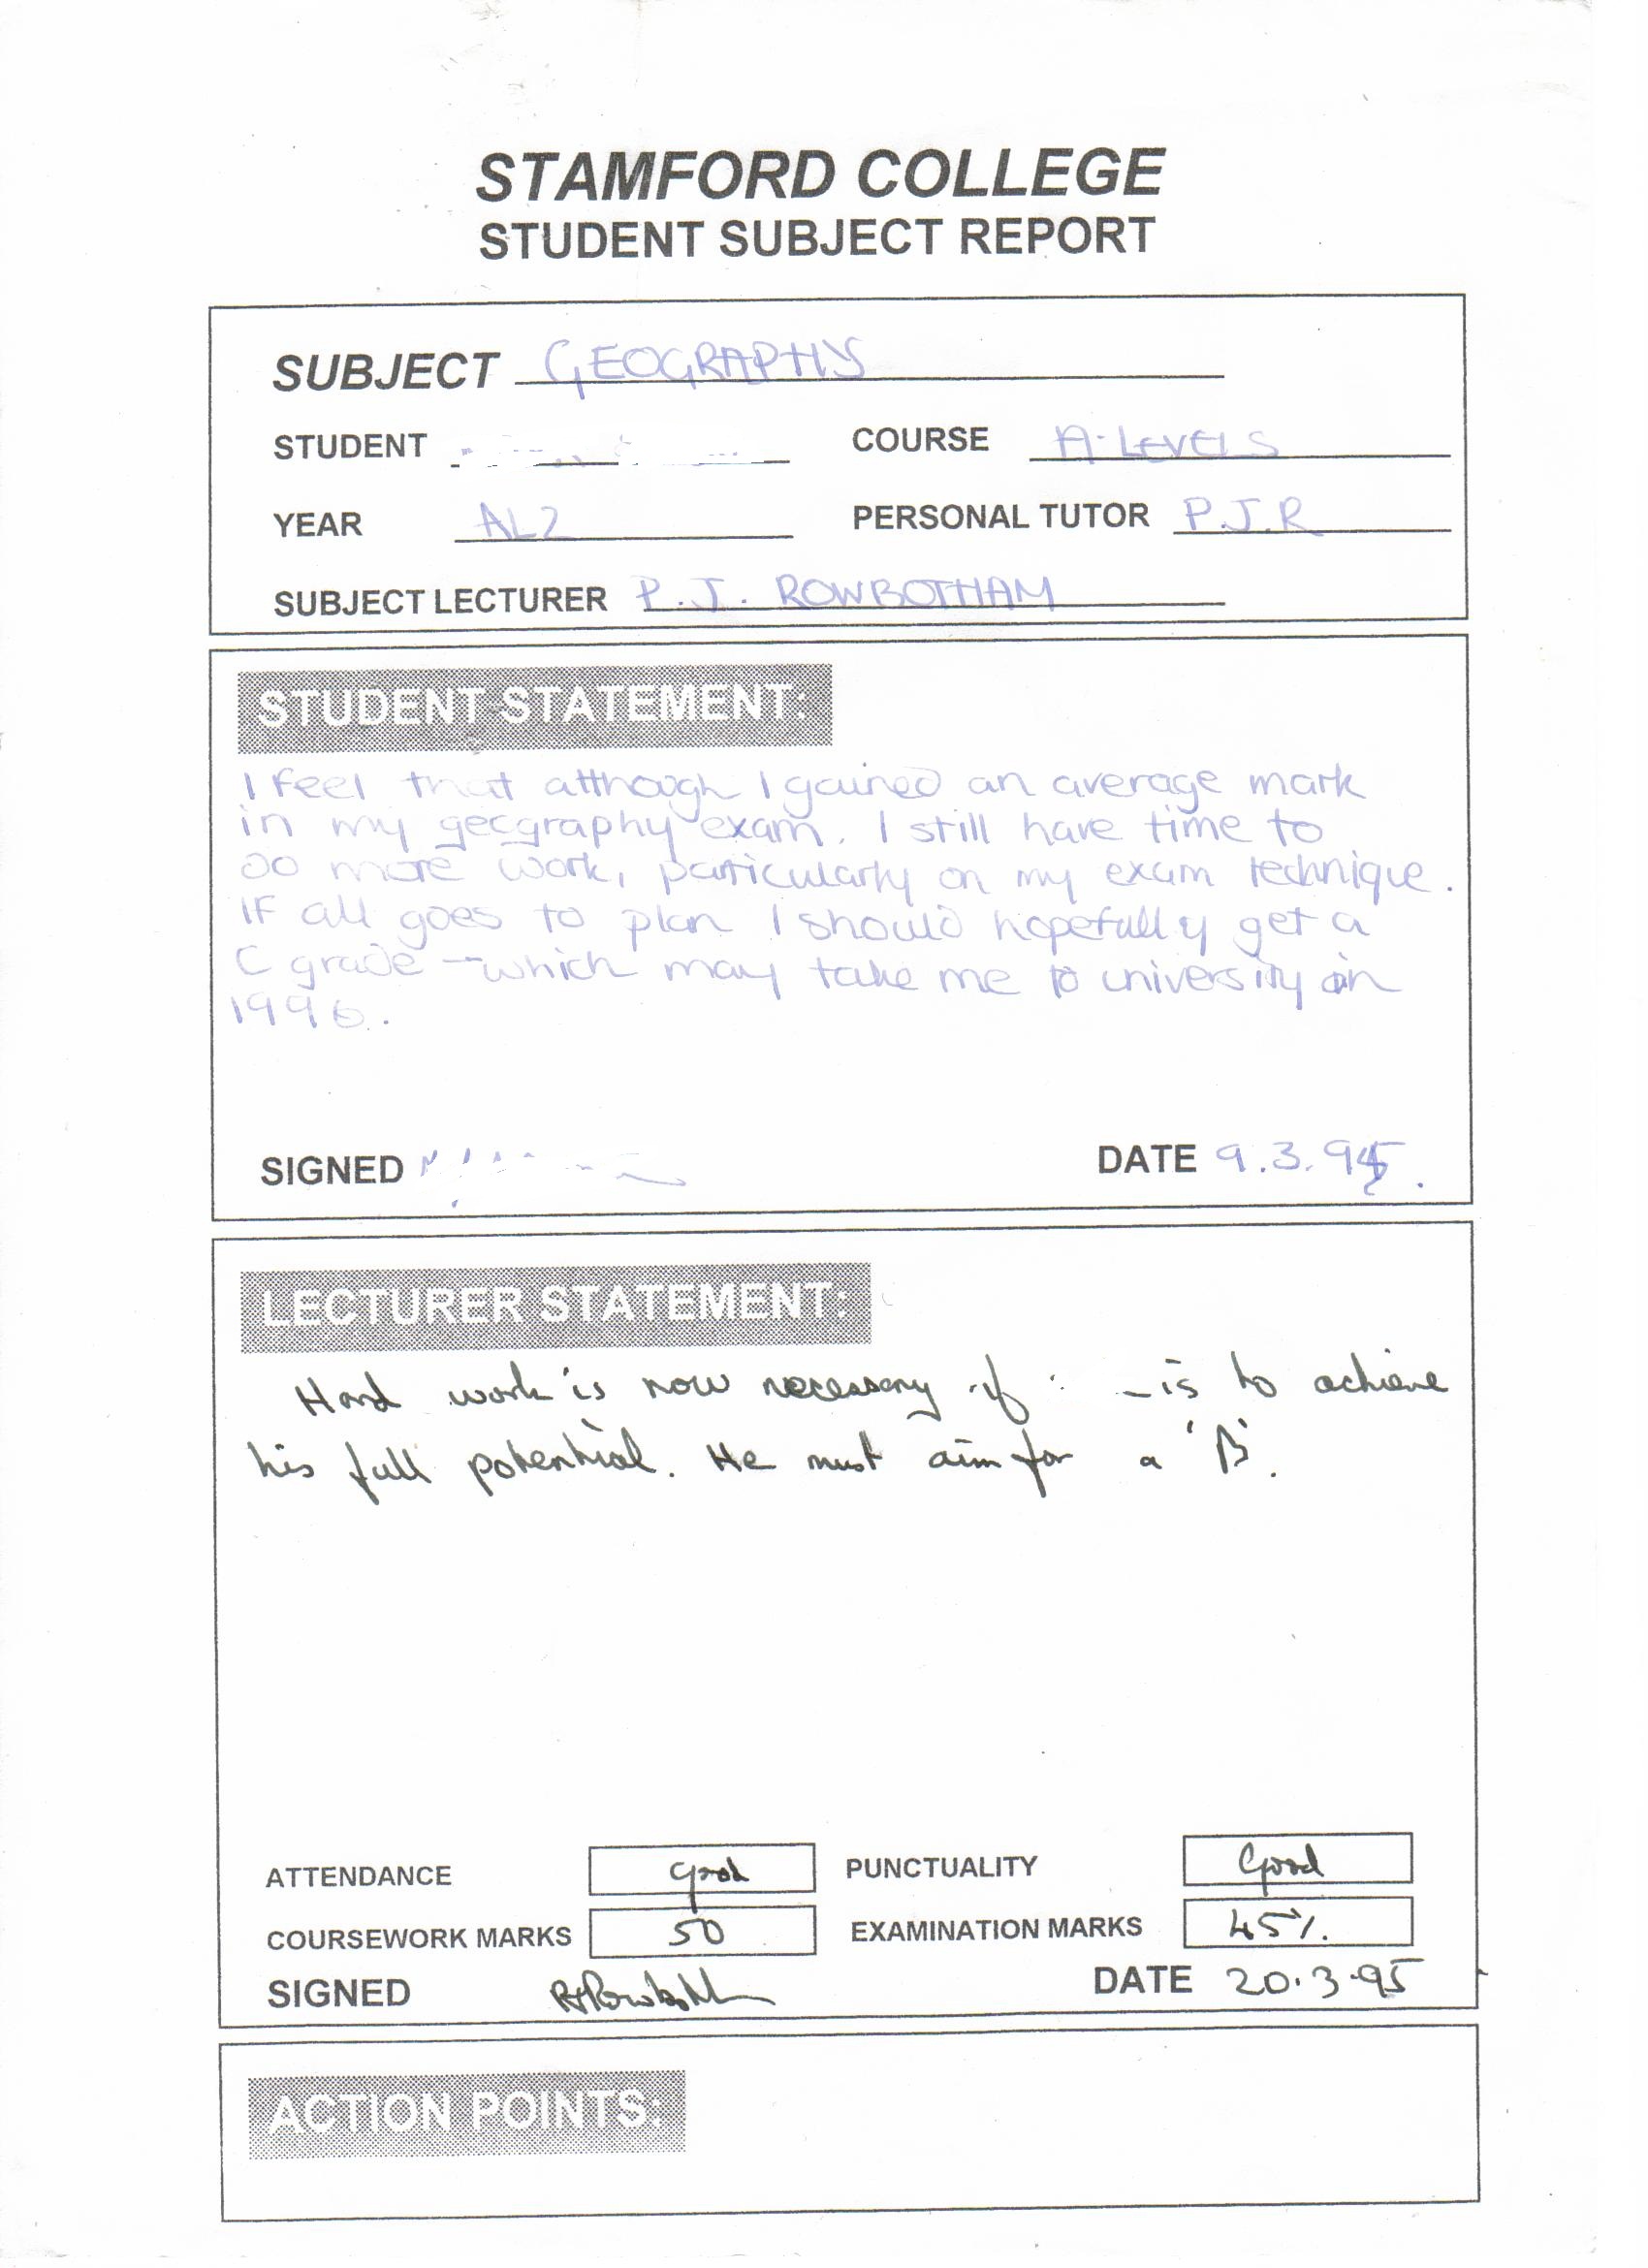 STAMFORD COLLEGE
STUDENT SUBJECT REPORT
SUBJECT GEOGRAPHY
STUDENT COURSE A-LEVELS
YEAR AL2 PERSONAL TUTOR P.J.R
SUBJECT LECTURER P.J. ROWBOTHAM
STUDENT STATEMENT:
I feel that although I gained an average mark
in my geography exam, I still have time to
do more work, particularly on my exam technique.
If all goes to plan I should hopefully get a
C grade - which may take me to university in
1996.
SIGNED DATE 9.3.95.
LECTURER STATEMENT:
Hard work is now necessary if - is to achieve
his full potential. He must aim for a 'B'.
ATTENDANCE good PUNCTUALITY Good
COURSEWORK MARKS 50 EXAMINATION MARKS 45%.
SIGNED PJRowbotham DATE 20.3.95
ACTION POINTS: